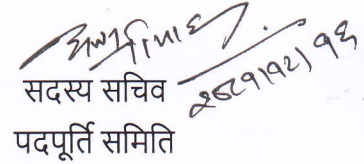 २०८१।१२।१६
सदस्य सचिव
पदपूर्ति समिति